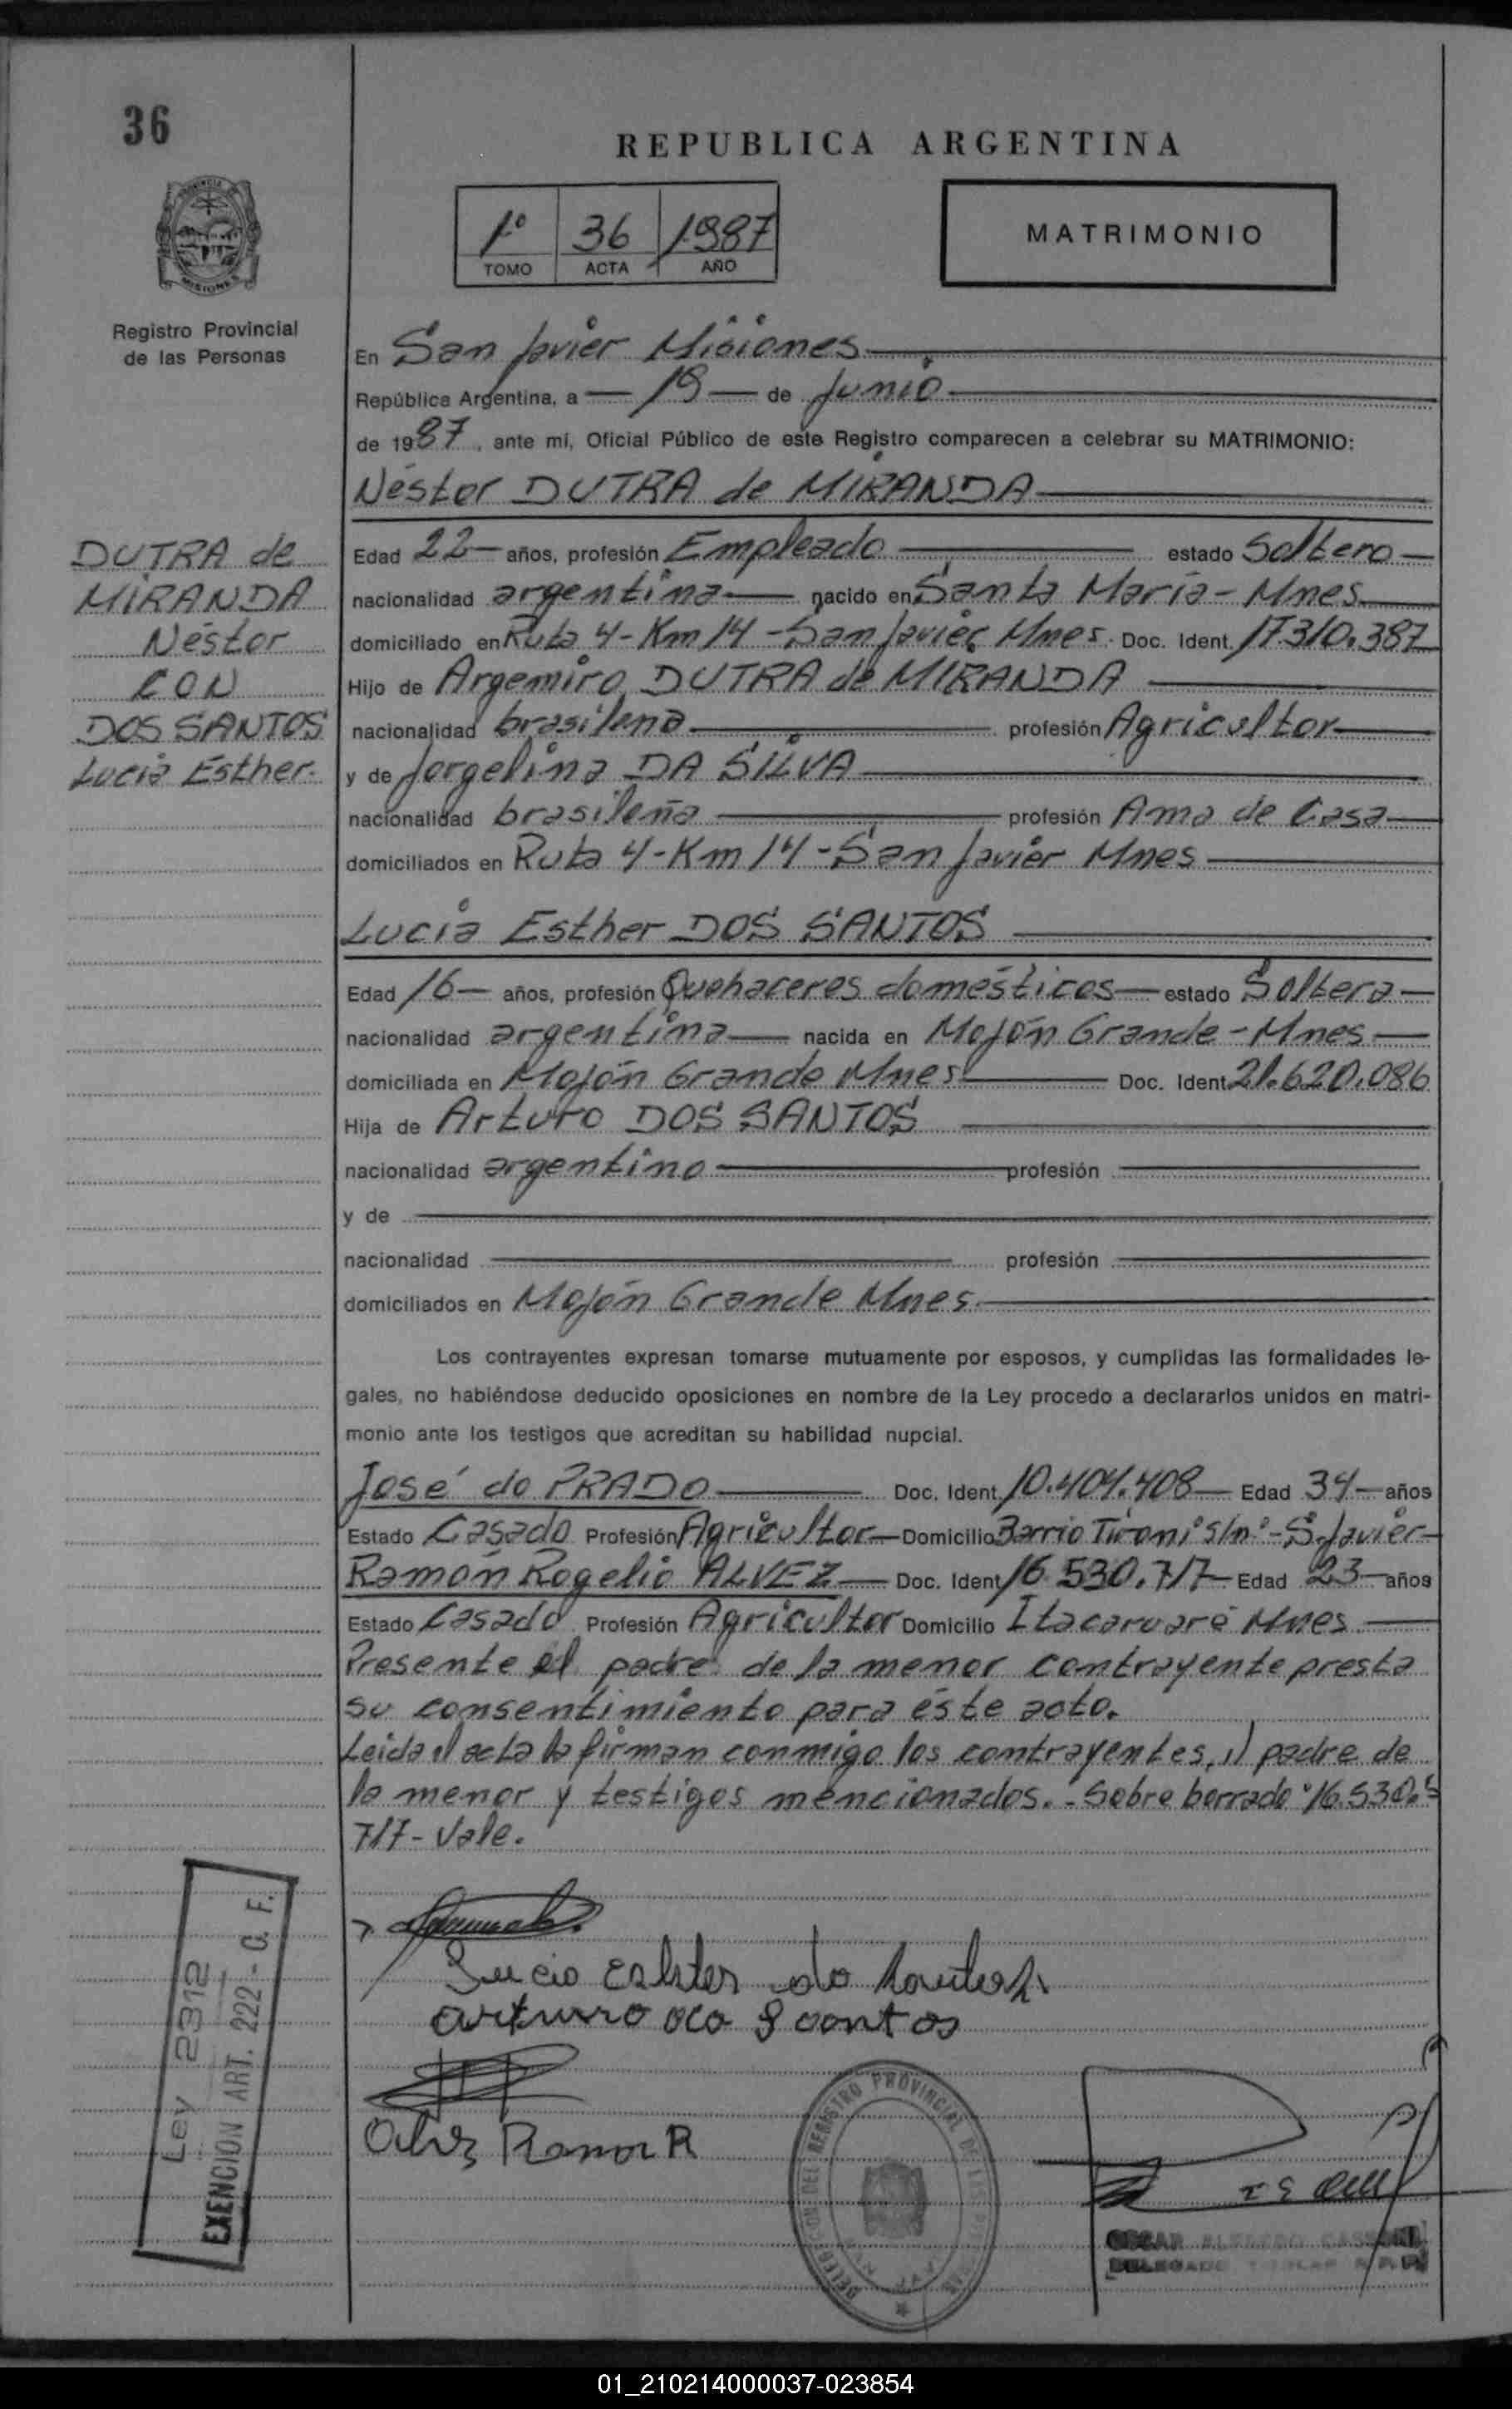 36
REPUBLICA ARGENTINA
1º 36 1987
TOMO ACTA AÑO
MATRIMONIO
PROVINCIA DE
MISIONES
Registro Provincial
de las Personas
En San Javier Misiones
República Argentina, a 19 de Junio
de 1987, ante mí, Oficial Público de este Registro comparecen a celebrar su MATRIMONIO:
Néstor DUTRA de MIRANDA
DUTRA de
MIRANDA
Néstor
CON
DOS SANTOS
Lucía Esther.
Edad 22 años, profesión Empleado estado Soltero
nacionalidad argentina nacido en Santa María - Mnes
domiciliado en Ruta 4 - Km 14 - San Javier Mnes. Doc. Ident. 17.310.387
Hijo de Argemiro DUTRA de MIRANDA
nacionalidad brasileña profesión Agricultor
y de Jorgelina DA SILVA
nacionalidad brasileña profesión Ama de Casa
domiciliados en Ruta 4 - Km 14 - San Javier Mnes
Lucía Esther DOS SANTOS
Edad 16 años, profesión Quehaceres domésticos estado Soltera
nacionalidad argentina nacida en Mojón Grande - Mnes
domiciliada en Mojón Grande Mnes Doc. Ident. 21.620.086
Hija de Arturo DOS SANTOS
nacionalidad argentino profesión
y de
nacionalidad profesión
domiciliados en Mojón Grande Mnes.
Los contrayentes expresan tomarse mutuamente por esposos, y cumplidas las formalidades le-
gales, no habiéndose deducido oposiciones en nombre de la Ley procedo a declararlos unidos en matri-
monio ante los testigos que acreditan su habilidad nupcial.
José do PRADO Doc. Ident. 10.404.408 Edad 34 años
Estado Casado Profesión Agricultor Domicilio Barrio Tironi s/nº - S. Javier
Ramón Rogelio ALVEZ Doc. Ident. 16.530.717 Edad 23 años
Estado Casado Profesión Agricultor Domicilio Itacaruaré Mnes
Presente el padre de la menor contrayente presta
su consentimiento para éste acto.
Leida el acta la firman conmigo los contrayentes, el padre de
la menor y testigos mencionados. - Sobre borrado "16.530.
717 - Vale.
Ley 2312
EXENCION ART. 222 - C. F.
Alvez Ramon R
DELEGACION DEL REGISTRO PROVINCIAL DE LAS PERSONAS
SAN JAVIER
OSCAR ALFREDO
DELEGADO TITULAR R. P. P.
01_210214000037-023854